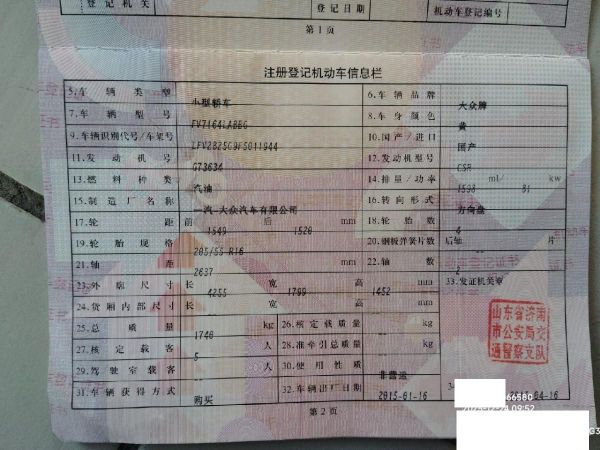 登记机关 登记日期 机动车登记编号
第1页
注册登记机动车信息栏
5.车辆类型 小型轿车 6.车辆品牌 大众牌
7.车辆型号 FV7164LABBG 8.车身颜色 黄
9.车辆识别代号/车架号 LFV2B25G9F5011944 10.国产/进口 国产
11.发动机号 G73634 12.发动机型号 CSR
13.燃料种类 汽油 14.排量/功率 1598 ml/ 81 kw
15.制造厂名称 一汽-大众汽车有限公司 16.转向形式 方向盘
17.轮距 前 1549 后 1520 mm 18.轮胎数 4
19.轮胎规格 205/55 R16 20.钢板弹簧片数 后轴 片
21.轴距 2637 mm 22.轴数 2
23.外廓尺寸 长 4255 宽 1799 高 1452 mm 33.发证机关章
24.货厢内部尺寸 长 宽 高 mm
25.总质量 1740 kg 26.核定载质量 kg
27.核定载客 5 人 28.准牵引总质量 kg
29.驾驶室载客 人 30.使用性质 非营运
31.车辆获得方式 购买 32.车辆出厂日期 2015-01-16
山东省济南
市公安局交
通警察支队
第2页